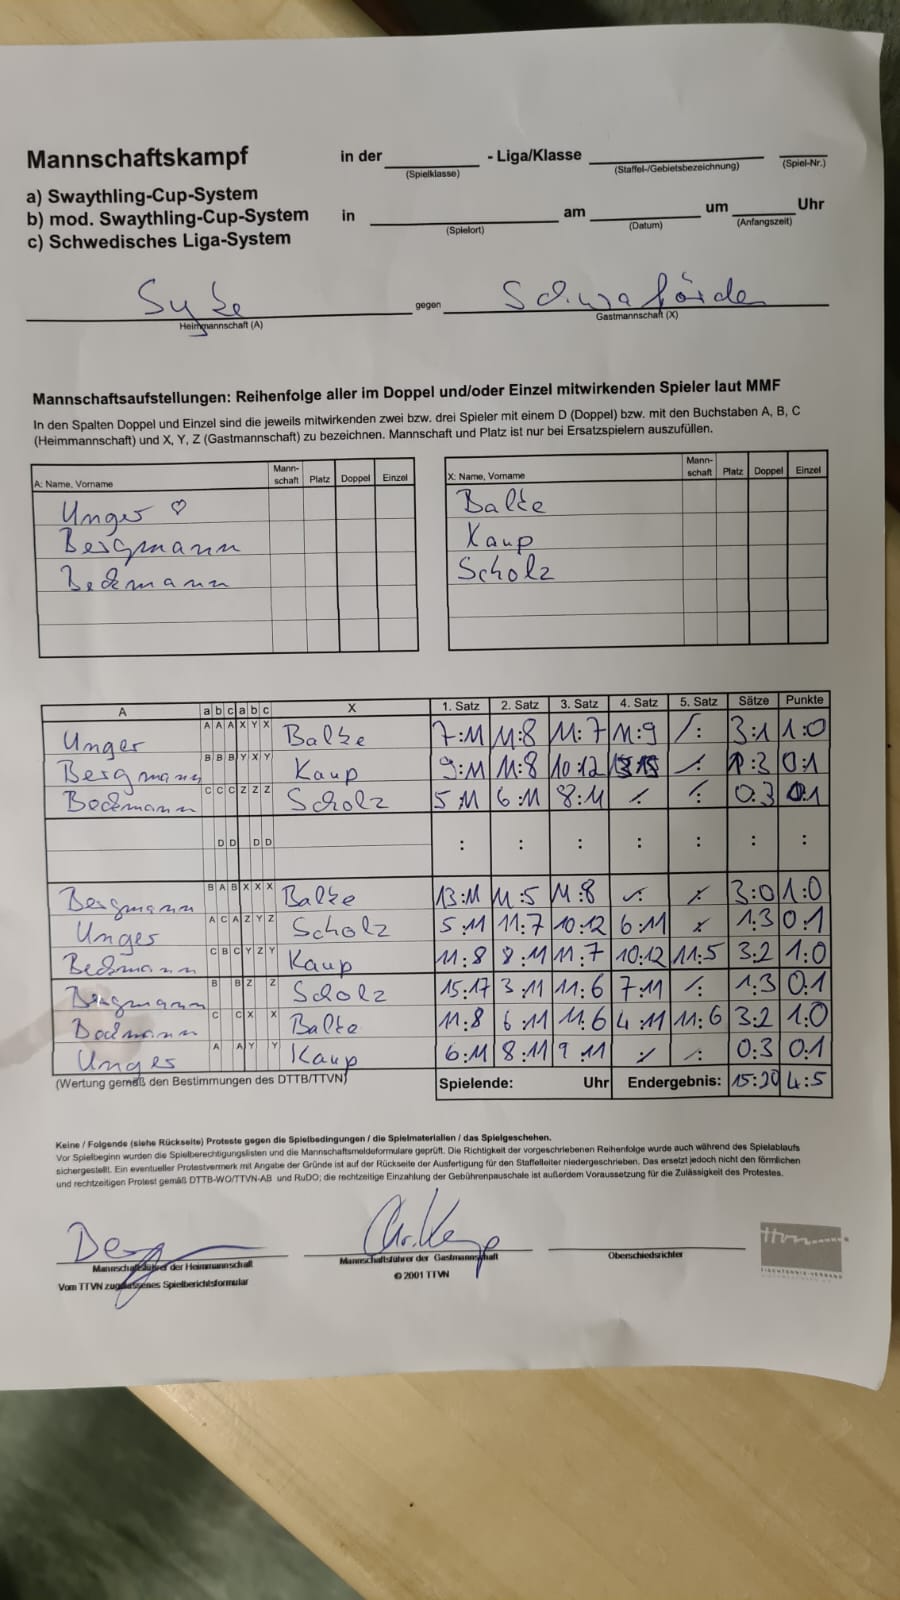 Mannschaftskampf in der - Liga/Klasse
(Spielklasse) (Staffel-/Gebietsbezeichnung) (Spiel-Nr.)
a) Swaythling-Cup-System
b) mod. Swaythling-Cup-System in am um Uhr
(Spielort) (Datum) (Anfangszeit)
c) Schwedisches Liga-System
Syke gegen Schwaförden
Heimmannschaft (A) Gastmannschaft (X)
Mannschaftsaufstellungen: Reihenfolge aller im Doppel und/oder Einzel mitwirkenden Spieler laut MMF
In den Spalten Doppel und Einzel sind die jeweils mitwirkenden zwei bzw. drei Spieler mit einem D (Doppel) bzw. mit den Buchstaben A, B, C
(Heimmannschaft) und X, Y, Z (Gastmannschaft) zu bezeichnen. Mannschaft und Platz ist nur bei Ersatzspielern auszufüllen.
A: Name, Vorname Mann-schaft Platz Doppel Einzel X: Name, Vorname Mann-schaft Platz Doppel Einzel
Unger ♡ Balke
Bergmann Kaup
Beckmann Scholz
A a b c a b c X 1. Satz 2. Satz 3. Satz 4. Satz 5. Satz Sätze Punkte
Unger A A A X Y X Balke 7:11 11:8 11:7 11:9 /: 3:1 1:0
Bergmann B B B Y X Y Kaup 9:11 11:8 10:12 /: 1:3 0:1
Beckmann C C C Z Z Z Scholz 5:11 6:11 8:11 /: /: 0:3 0:1
D D D D : : : : : : :
Bergmann B A B X X X Balke 13:11 11:5 11:8 /: /: 3:0 1:0
Unger A C A Z Y Z Scholz 5:11 11:7 10:12 6:11 /: 1:3 0:1
Beckmann C B C Y Z Y Kaup 11:8 8:11 11:7 10:12 11:5 3:2 1:0
Bergmann B B Z Z Scholz 15:17 3:11 11:6 7:11 /: 1:3 0:1
Beckmann C C X X Balke 11:8 6:11 11:6 4:11 11:6 3:2 1:0
Unger A A Y Y Kaup 6:11 8:11 9:11 /: /: 0:3 0:1
(Wertung gemäß den Bestimmungen des DTTB/TTVN) Spielende: Uhr Endergebnis: 15:20 4:5
Keine / Folgende (siehe Rückseite) Proteste gegen die Spielbedingungen / die Spielmaterialien / das Spielgeschehen.
Vor Spielbeginn wurden die Spielberechtigungslisten und die Mannschaftsmeldeformulare geprüft. Die Richtigkeit der vorgeschriebenen Reihenfolge wurde auch während des Spielablaufs
sichergestellt. Ein eventueller Protestvermerk mit Angabe der Gründe ist auf der Rückseite der Ausfertigung für den Staffelleiter niedergeschrieben. Das ersetzt jedoch nicht den förmlichen
und rechtzeitigen Protest gemäß DTTB-WO/TTVN-AB und RuDO; die rechtzeitige Einzahlung der Gebührenpauschale ist außerdem Voraussetzung für die Zulässigkeit des Protestes.
Mannschaftsführer der Heimmannschaft Mannschaftsführer der Gastmannschaft Oberschiedsrichter
Vom TTVN zugelassenes Spielberichtsformular © 2001 TTVN
ttvn